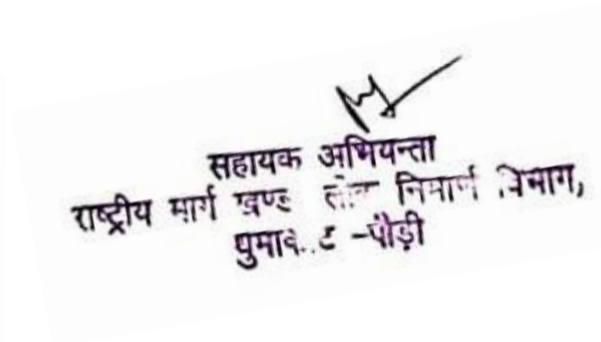 सहायक अभियन्ता
राष्ट्रीय मार्ग खण्ड निमार्ण विभाग,
-पौड़ी